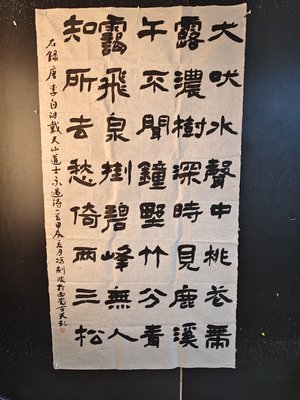 犬吠水聲中桃花帶
露濃樹深時見鹿溪
午不聞鐘野竹分青
靄飛泉掛碧峰無人
知所去愁倚兩三松
右錄唐李白訪戴天山道士不遇詩一首甲辰夏月馮劍波於西蜀